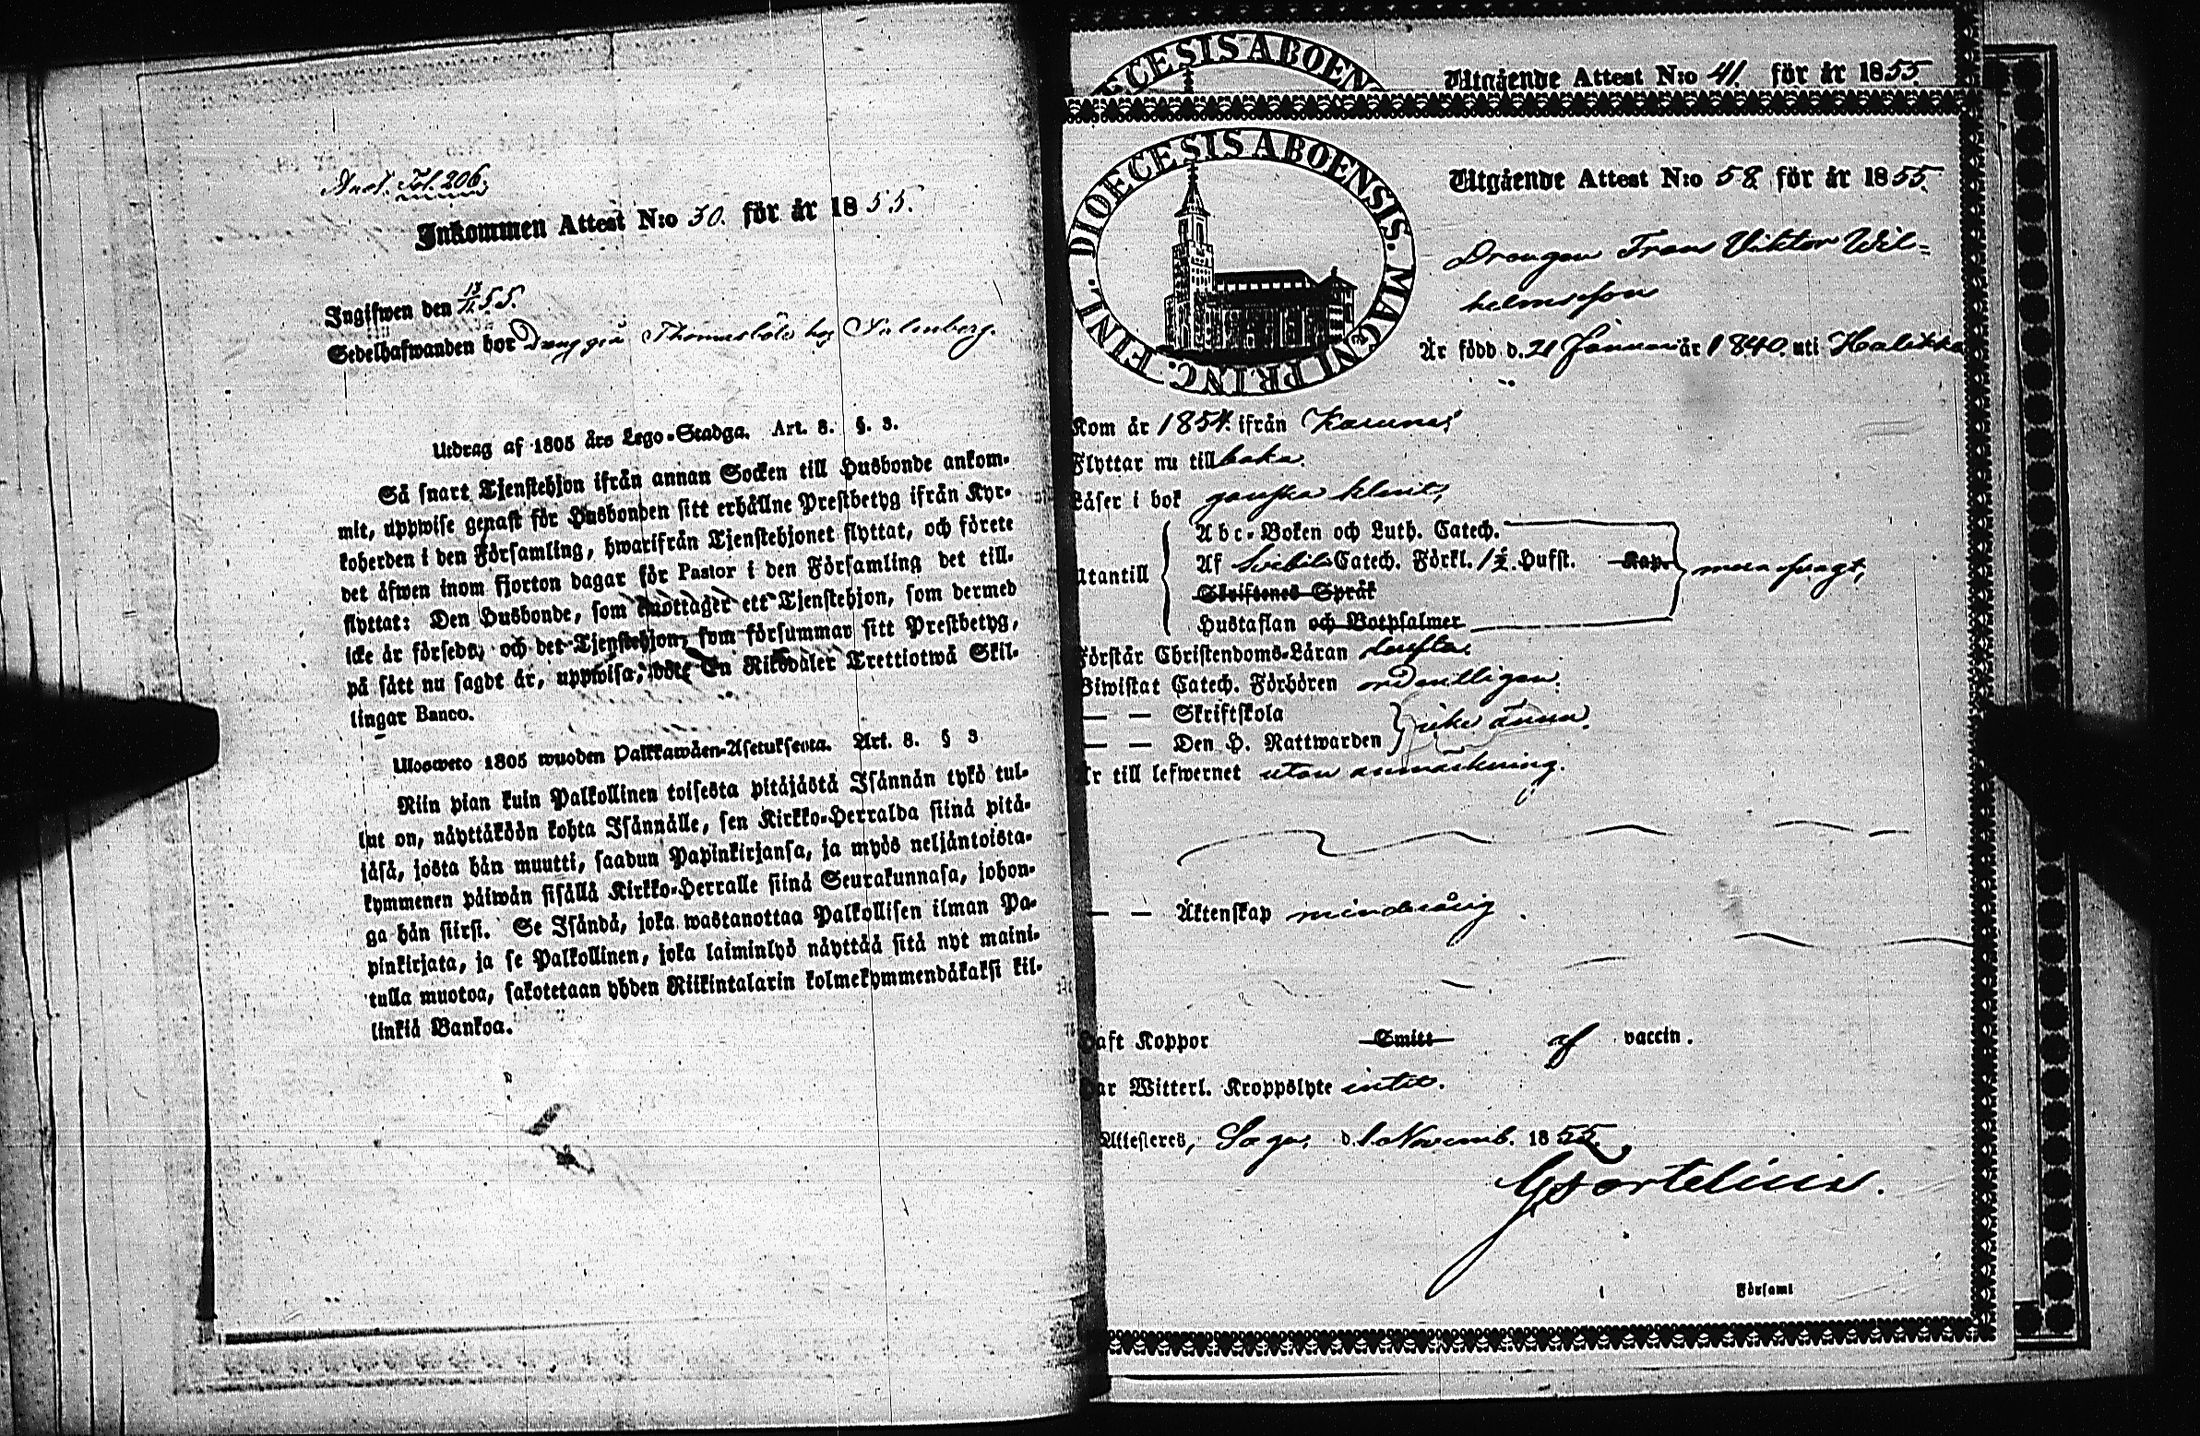 Anot. Fol. 206.
Inkommen Attest N:o 30. för år 1855.
Ingifwen den 13/11 55.
Sedelhafwanden bor Dräng på Thomasböle hos Salenberg.
Utdrag af 1805 års Lego-Stadga. Art. 8. §. 3.
Så snart Tjenstehjon ifrån annan Socken till Husbonde ankom-
mit, uppwise genast för Husbonden sitt erhållne Prestbetyg ifrån Kyr-
koherden i den Församling, hwarifrån Tjenstehjonet flyttat, och förete
det äfwen inom fjorton dagar för Pastor i den Församling det till-
flyttat: Den Husbonde, som emottager ett Tjenstehjon, som dermed
icke är försedt, och det Tjenstehjon, som försummar sitt Prestbetyg,
på sätt nu sagdt är, uppwisa, böte En Riksdaler Trettiotwå Skil-
lingar Banco.
Ulosweto 1805 wuoden Palkkawäen-Asetuksesta. Art. 8. § 3
Niin pian kuin Palkollinen toisesta pitäjästä Isännän tykö tul-
lut on, näyttäköön kohta Isännälle, sen Kirkko-Herralda siinä pitä-
jäsä, josta hän muutti, saadun Papinkirjansa, ja myös neljäntoista-
kymmenen päiwän sisällä Kirkko-Herralle siinä Seurakunnasa, johon-
ga hän siirsi. Se Isändä, joka wastanottaa Palkollisen ilman Pa-
pinkirjata, ja se Palkollinen, joka laiminlyö näyttää sitä nyt maini-
tulla muotoa, sakotetaan yhden Riikintalarin kolmekymmendäkaksi kil-
linkiä Bankoa.
ECESIS ABOEN
Utgående Attest N:o 41. för år 1855
FINL. DIOECESIS ABOENSIS. MAGNI PRINC.
Utgående Attest N:o 58 för år 1855.
Drengen Frans Viktor Wil-
helmsson
Är född d. 21 Januari år 1840. uti Halikko
Kom år 1854. ifrån Karuna;
Flyttar nu tillbaka.
Läser i bok ganska klent;
Abc-Boken och Luth. Catech.
Utantill
Af Svebili Catech. Förkl. 1 1/2. Hufst. Kap.
mera svagt;
Skriftenes Språk
Hustaflan och Botpsalmer
Förstår Christendoms-Läran
Biwistat Catech. Förhören ordentligen.
— — Skriftskola
icke ännu.
— — Den H. Nattwarden
Är till lefwernet utan anmärkning.
— — Äktenskap minderårig.
Haft Koppor Smitt af vaccin.
Har Witterl. Kroppslyte intet.
Attesteres, Sagu, d. 1 Novemb. 1855.
G Fortelius.
Församl